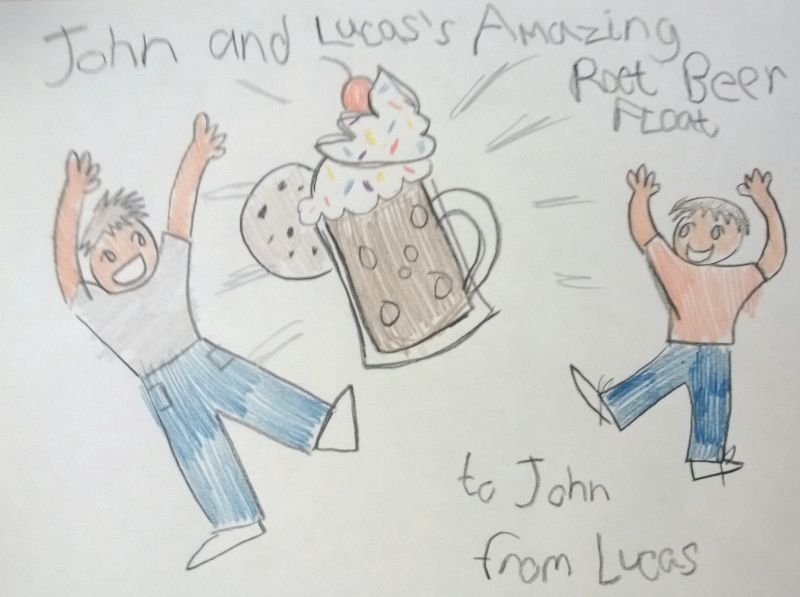 John and Lucas's Amazing
Root Beer
Float
to John
from Lucas